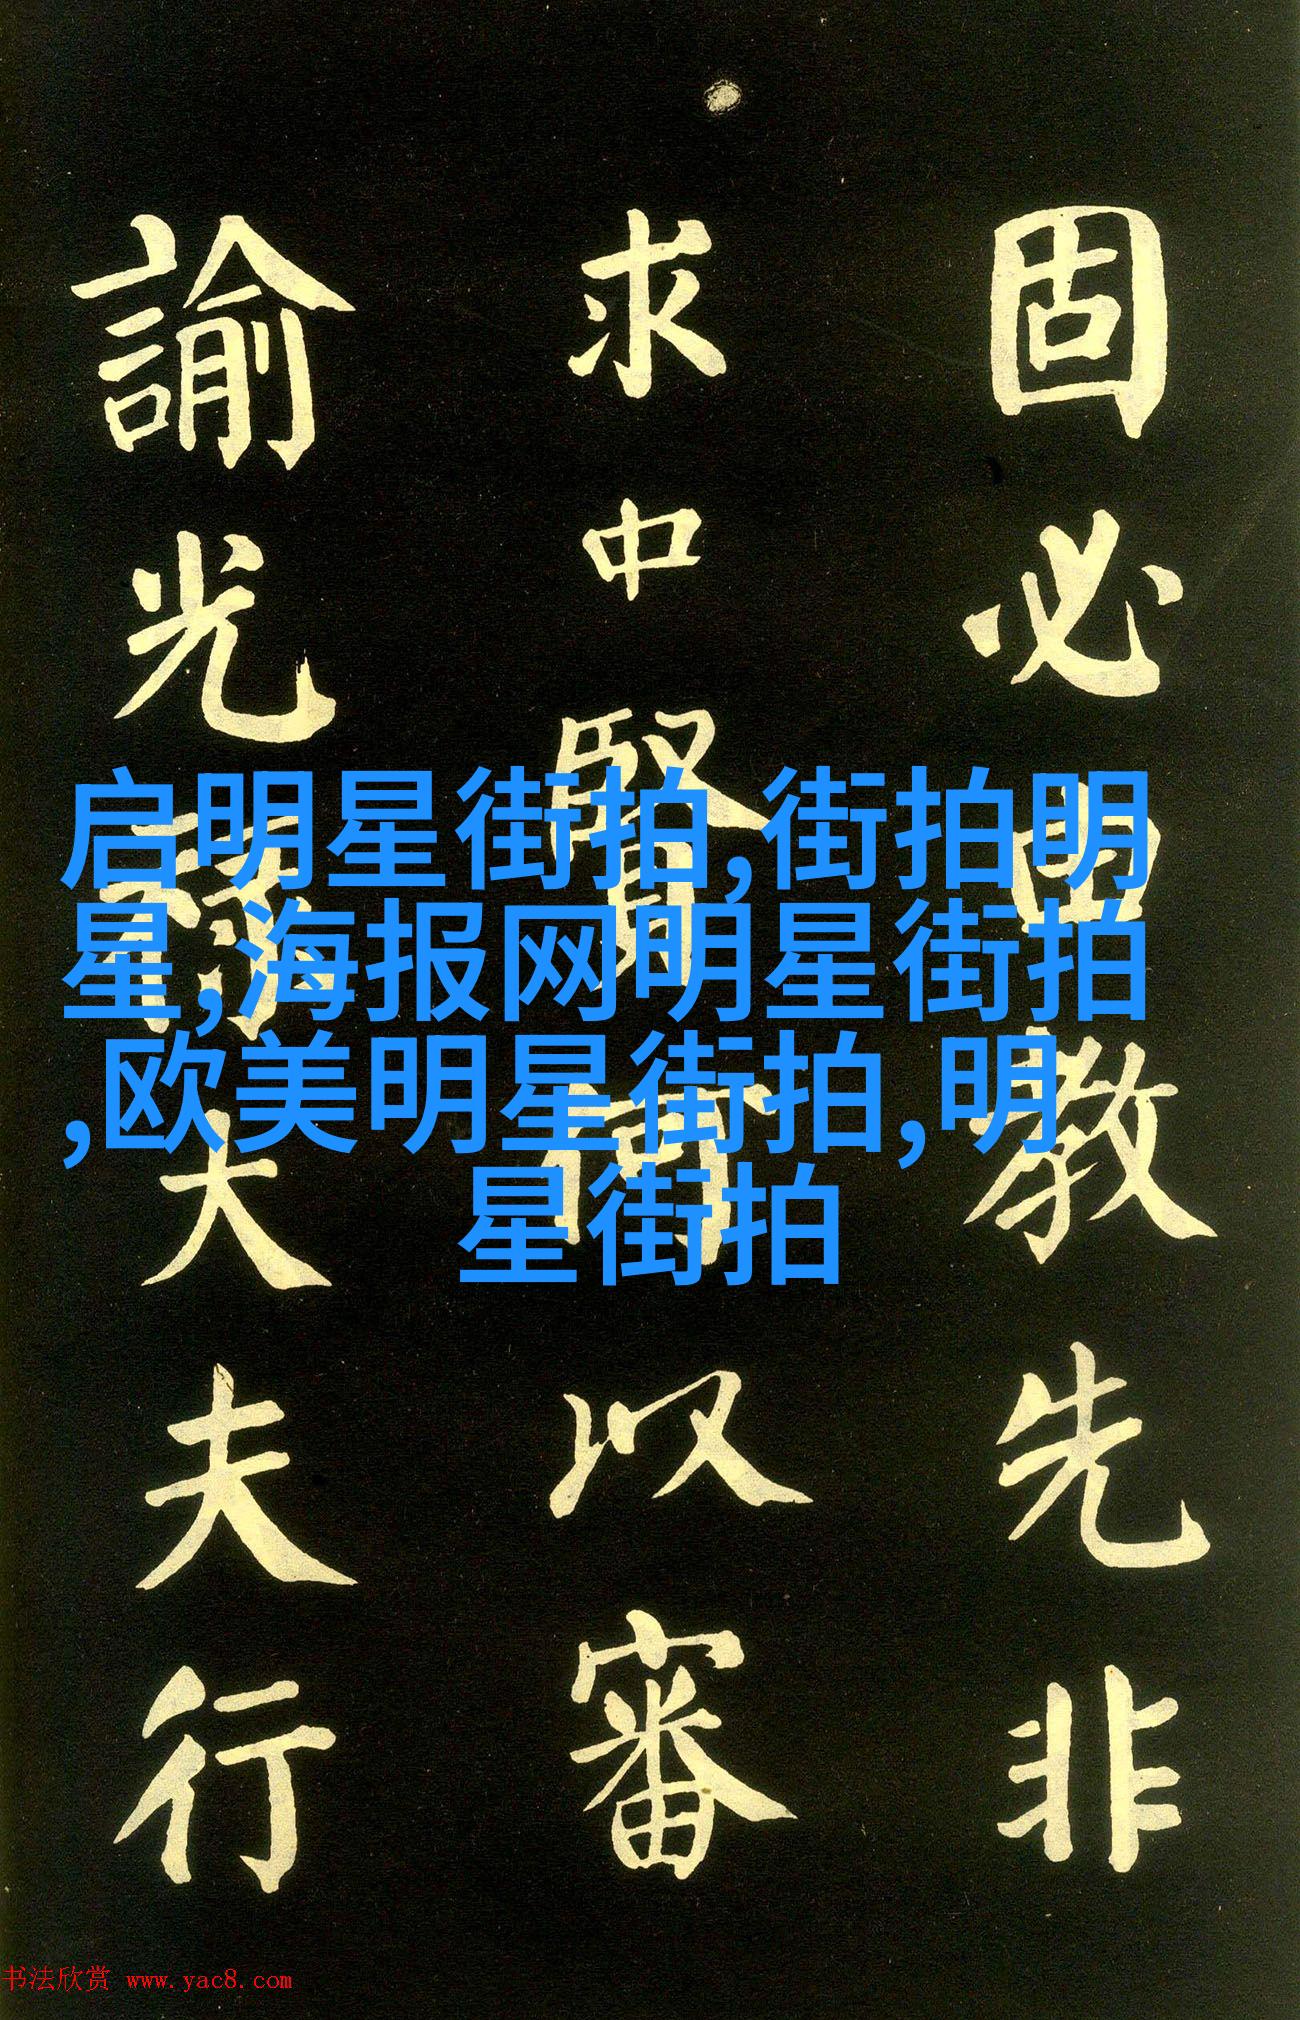 固必由教先非
求中賢何以審
諭光祿大夫行
启明星街拍,街拍明
星,海报网明星街拍
,欧美明星街拍,明
星街拍
书法欣赏 www.yac8.com